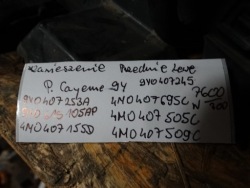 Zawieszenie Przednie Lewe
P. Cayenne 9Y 9Y0407245
9Y0407253A 4M0407695C 7600
105AP 4M0407505C N 700
4M0407155D 4M0407509C